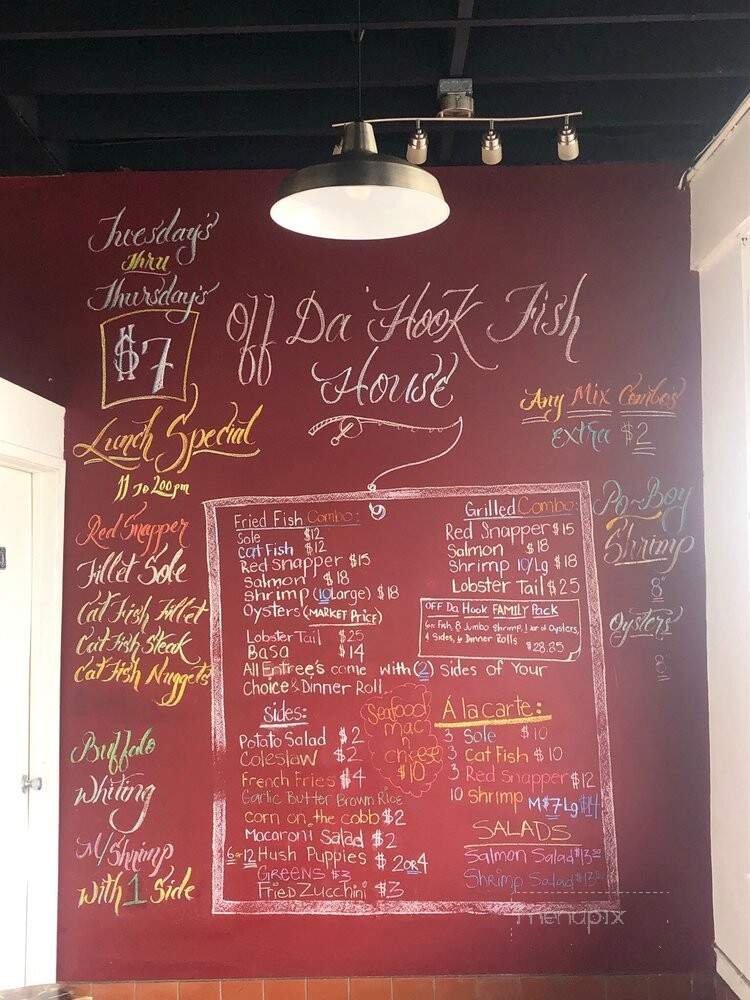 Tuesday's
Thru
Thursday's
$7
Lunch Special
11 To 2:00 pm
Red Snapper
Fillet Sole
Cat Fish Fillet
Cat Fish Steak
Cat Fish Nuggets
Buffalo
Whiting
M/Shrimp
With 1 Side
Off Da' Hook Fish
House
Any Mix Combo's
Extra $2
Po-Boy
Shrimp
8"
Oysters
8"
Fried Fish Combo:
Sole $12
Cat Fish $12
Red Snapper $15
Salmon $18
Shrimp (10 Large) $18
Oysters (MARKET PRICE)
Lobster Tail $25
Basa $14
All Entree's come with (2) Sides of Your
Choice & Dinner Roll
Grilled Combo:
Red Snapper $15
Salmon $18
Shrimp 10/Lg $18
Lobster Tail $25
OFF Da Hook FAMILY Pack
6pc Fish, 8 Jumbo Shrimp, 1 or of Oysters,
4 Sides, 4 Dinner Rolls
$28.85
Sides:
Potato Salad $2
Coleslaw $2
French Fries $4
Garlic Butter Brown Rice
corn on the cobb $2
Macaroni Salad $2
6 or 12 Hush Puppies $ 2 or 4
GREENS $3
Fried Zucchini $3
Seafood
mac
n
cheese
$10
Á la carte:
3 Sole $10
3 Cat Fish $10
3 Red Snapper $12
10 Shrimp M $7 Lg $14
SALADS
Salmon Salad $13.50
Shrimp Salad
menupix